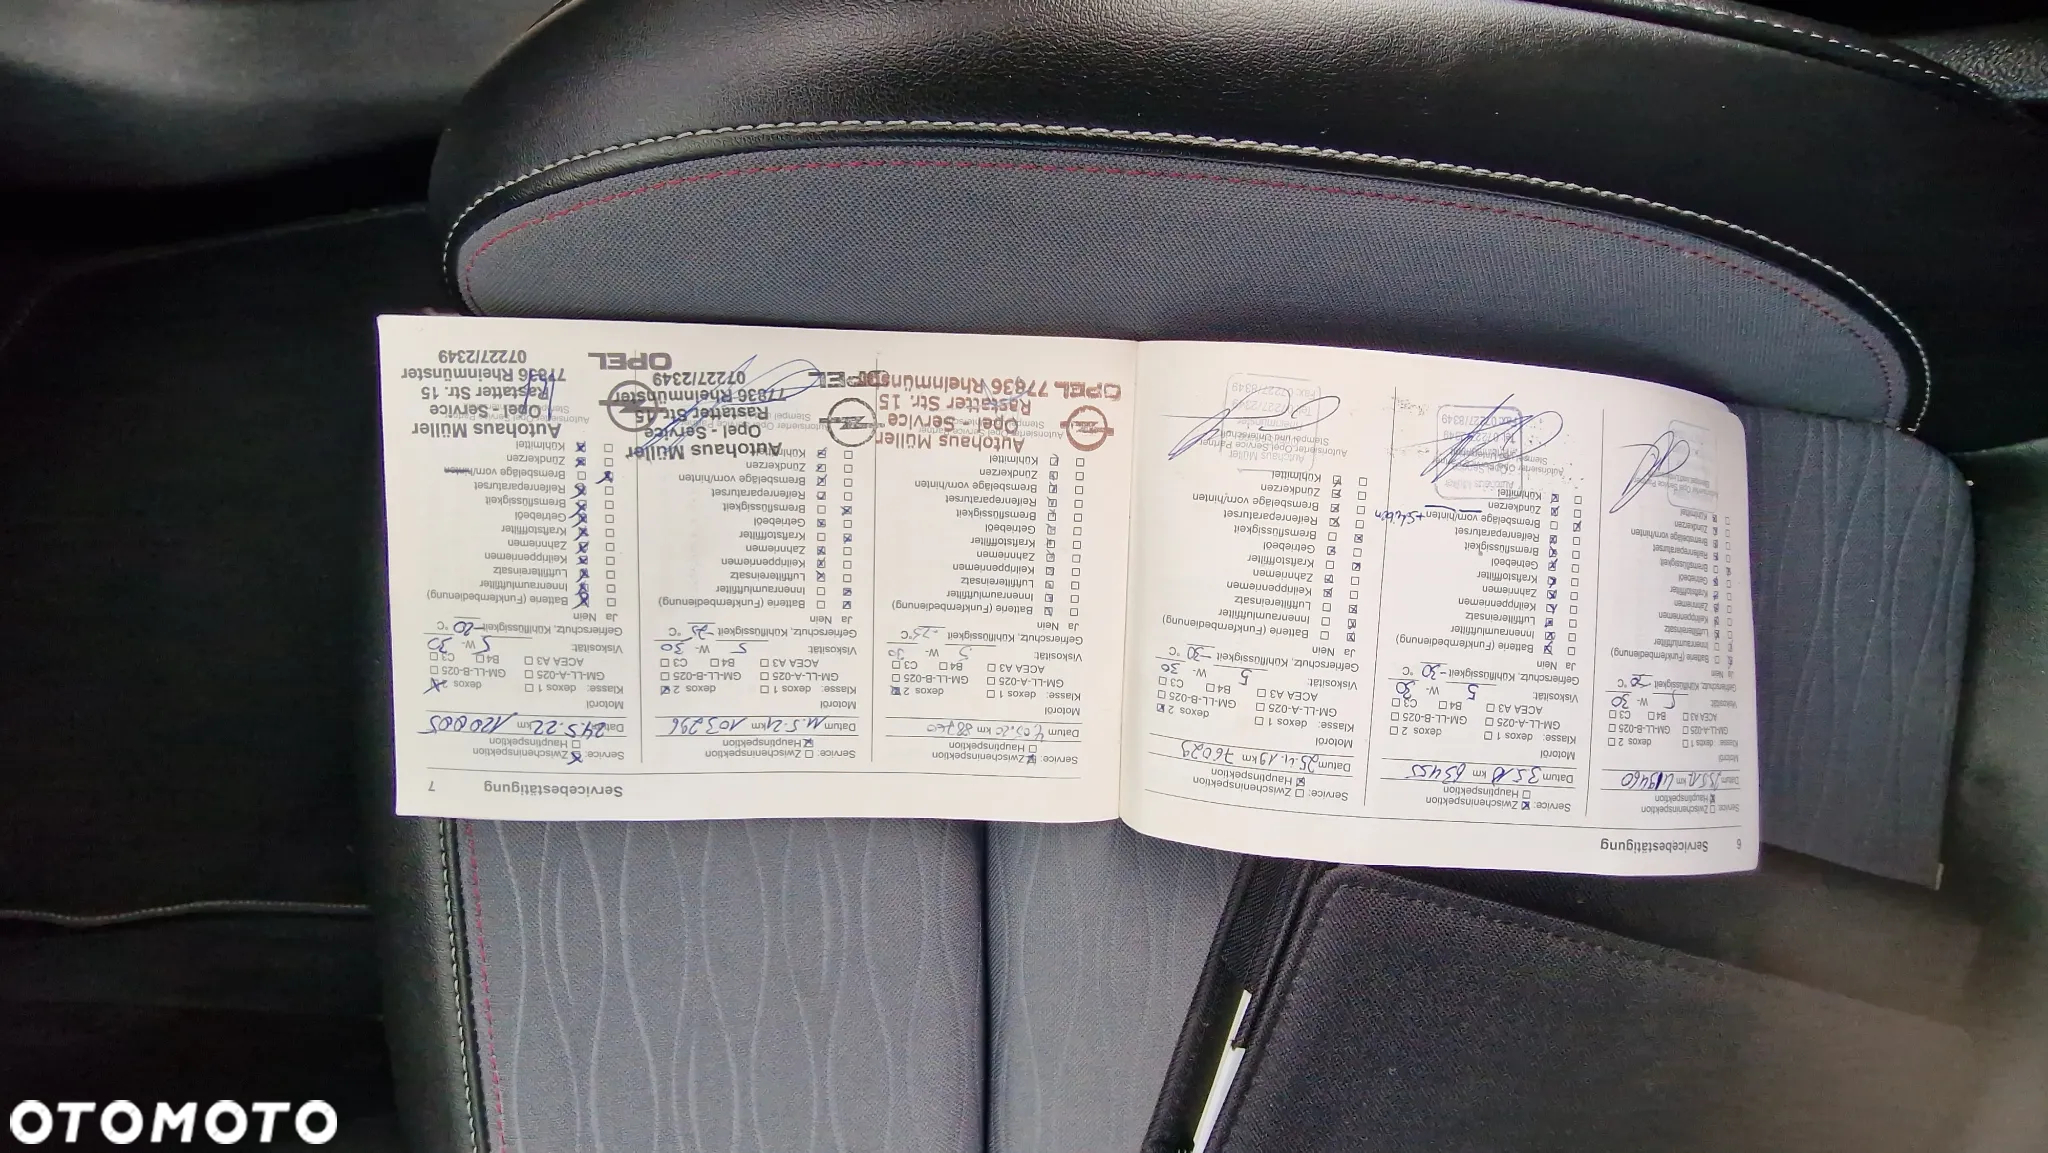 6 Servicebestätigung
Service: Zwischeninspektion
Hauptinspektion
Datum km
Motoröl
Klasse: dexos 1 dexos 2
GM-LL-A-025 GM-LL-B-025
ACEA A3 B4 C3
Viskosität: 5 W- 30
Gefrierschutz, Kühlflüssigkeit -30 °C
Ja Nein
Batterie (Funkfernbedienung)
Innenraumluftfilter
Luftfiltereinsatz
Keilrippenriemen
Zahnriemen
Kraftstofffilter
Getriebeöl
Bremsflüssigkeit
Reifenreparaturset
Bremsbeläge vorn/hinten
Zündkerzen
Kühlmittel
Service: Zwischeninspektion
Hauptinspektion
Datum 3.5.18 km 63455
Motoröl
Klasse: dexos 1 dexos 2
GM-LL-A-025 GM-LL-B-025
ACEA A3 B4 C3
Viskosität: 5 W- 30
Gefrierschutz, Kühlflüssigkeit -30 °C
Ja Nein
Batterie (Funkfernbedienung)
Innenraumluftfilter
Luftfiltereinsatz
Keilrippenriemen
Zahnriemen
Kraftstofffilter
Getriebeöl
Bremsflüssigkeit
Reifenreparaturset
Bremsbeläge vorn/hinten + Scheiben
Zündkerzen
Kühlmittel
Autohaus Müller
Service: Zwischeninspektion
Hauptinspektion
Datum 25.4.19 km 76029
Motoröl
Klasse: dexos 1 dexos 2
GM-LL-A-025 GM-LL-B-025
ACEA A3 B4 C3
Viskosität: 5 W- 30
Gefrierschutz, Kühlflüssigkeit -30 °C
Ja Nein
Batterie (Funkfernbedienung)
Innenraumluftfilter
Luftfiltereinsatz
Keilrippenriemen
Zahnriemen
Kraftstofffilter
Getriebeöl
Bremsflüssigkeit
Reifenreparaturset
Bremsbeläge vorn/hinten
Zündkerzen
Kühlmittel
Autohaus Müller
Autorisierter Opel Service Partner
Stempel und Unterschrift
Servicebestätigung 7
Service: Zwischeninspektion
Hauptinspektion
Datum km 88760
Motoröl
Klasse: dexos 1 dexos 2
GM-LL-A-025 GM-LL-B-025
ACEA A3 B4 C3
Viskosität: 5 W- 30
Gefrierschutz, Kühlflüssigkeit -25 °C
Ja Nein
Batterie (Funkfernbedienung)
Innenraumluftfilter
Luftfiltereinsatz
Keilrippenriemen
Zahnriemen
Kraftstofffilter
Getriebeöl
Bremsflüssigkeit
Reifenreparaturset
Bremsbeläge vorn/hinten
Zündkerzen
Kühlmittel
Autohaus Müller
Opel - Service
Rastatter Str. 15
OPEL 77836 Rheinmünster
Service: Zwischeninspektion
Hauptinspektion
Datum 11.5.21 km 103296
Motoröl
Klasse: dexos 1 dexos 2
GM-LL-A-025 GM-LL-B-025
ACEA A3 B4 C3
Viskosität: 5 W- 30
Gefrierschutz, Kühlflüssigkeit -25 °C
Ja Nein
Batterie (Funkfernbedienung)
Innenraumluftfilter
Luftfiltereinsatz
Keilrippenriemen
Zahnriemen
Kraftstofffilter
Getriebeöl
Bremsflüssigkeit
Reifenreparaturset
Bremsbeläge vorn/hinten
Zündkerzen
Kühlmittel
Autohaus Müller
Opel - Service
Rastatter Str. 15
77836 Rheinmünster
OPEL 07227/2349
Service: Zwischeninspektion
Hauptinspektion
Datum 24.5.22 km 120005
Motoröl
Klasse: dexos 1 dexos 2
GM-LL-A-025 GM-LL-B-025
ACEA A3 B4 C3
Viskosität: 5 W- 30
Gefrierschutz, Kühlflüssigkeit -20 °C
Ja Nein
Batterie (Funkfernbedienung)
Innenraumluftfilter
Luftfiltereinsatz
Keilrippenriemen
Zahnriemen
Kraftstofffilter
Getriebeöl
Bremsflüssigkeit
Reifenreparaturset
Bremsbeläge vorn/hinten
Zündkerzen
Kühlmittel
Autohaus Müller
Opel - Service
Rastatter Str. 15
77836 Rheinmünster
OPEL 07227/2349
OTOMOTO